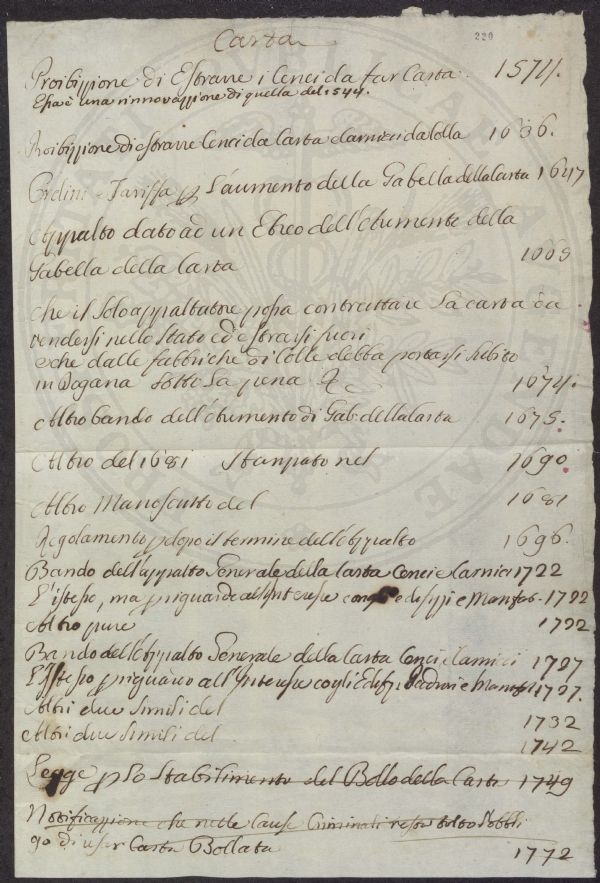 Carta
220
Proibizione di Estrarre i Cenci da far Carta. 1574.
Essa è una rinnovazzione di quella del 1544.
Proibizione di estrarre Cenci da Carta Carnicci da Colla 1636.
Ordini e Tariffa p l'aumento della Gabella della Carta 1647
Appalto dato ad un Ebreo dell'Aumento della
Gabella della Carta 1669
che il solo appaltatore possa contrattare la carta da
vendersi nello Stato ed estrarsi fuori
e che dalle fabbriche di Colle debba portarsi subito
in Dogana sotto la pena &c 1674.
Altro bando dell'Aumento di Gab. della Carta 1675.
Altro del 1681 Stampato nel 1690
Altro Manoscritto del 1681
Regolamento dopo il termine dell'Appalto 1696.
Bando dell'appalto Generale della Carta Cenci e Carnicci 1722
L'istesso, ma riguarda all'Interesse edifizzi e Manfat. 1722
Altro pure 1722
Bando dell'Appalto Generale della Carta Cenci e Carnicci 1727
L'Istesso riguardo all'Interesse cogli Edifizi 1727.
Altri due Simili del 1732
Altri due Simili del 1742
Legge p lo Stabilimento del Bollo della Carta 1749
Notificazione che nelle Cause Criminali resta tolto l'obbli
go di user Carta Bollata 1772